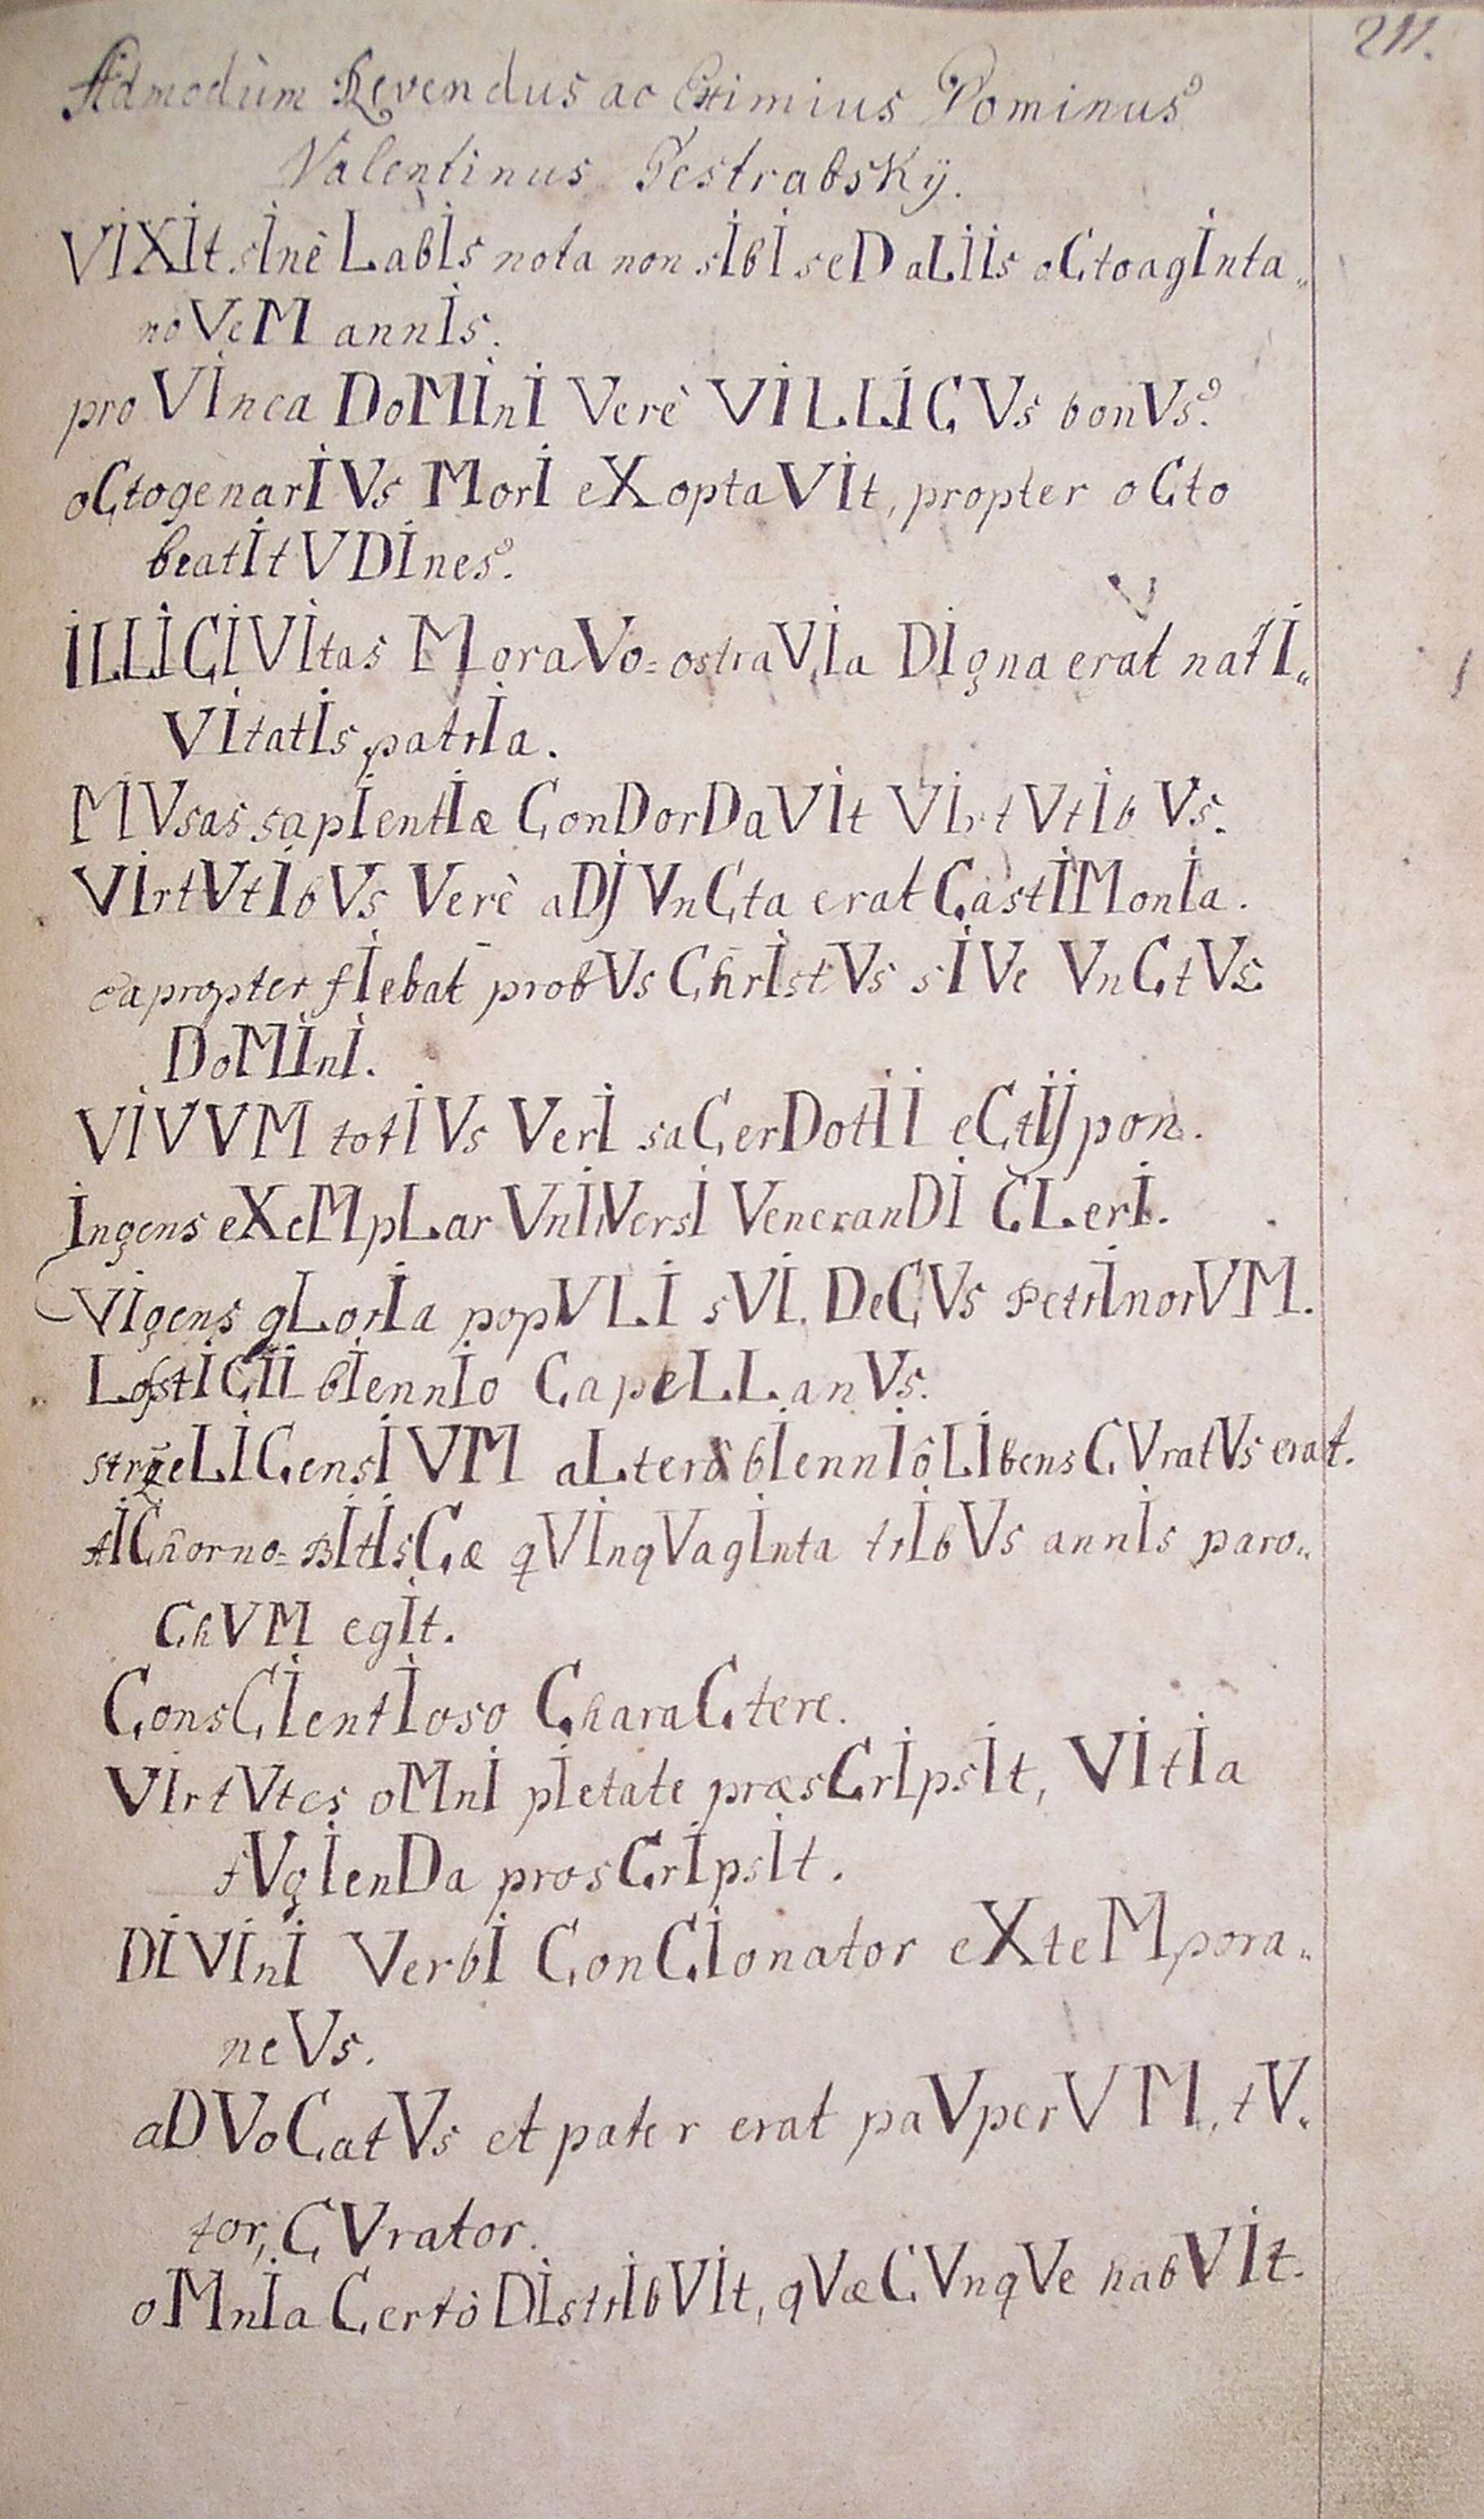 211.
Admodùm Revendus ac Eximius Dominus
Valentinus Pestrabskÿ.
VIXIt sInè LabIs nota non sIbI seD aLIIs oCtoagInta„
noVeM annIs.
pro VInca DoMInI Verè VILLICVs bonVs.
oCtogenarIVs MorI eXoptaVIt, propter oCto
beatItVDInes.
ILLI CIVItas MoraVo=ostraVIa DIgna erat natI„
VItatIs patrIa.
MVsas sapIentIæ ConDorDaVIt VIrtVtIbVs.
VIrtVtIbVs Verè aDJVnCta erat CastIMonIa.
eapropter fIebat probVs ChrIstVs sIVe VnCtVs
DoMInI.
VIVVM totIVs VerI saCerDotII eCtIJpon.
Ingens eXeMpLar VnIVersI VeneranDI CLerI.
VIgens gLorIa popVLI sVI. DeCVs PetrInorVM.
LostICII bIennIo CapeLLanVs.
strzeLICensIVM aLterô bIennIô LIbens CVratVs erat.
AIChorno=BItIsCæ qVInqVagInta trIbVs annIs paro„
ChVM egIt.
ConsCIentIoso CharaCtere.
VIrtVtes oMnI pIetate præsCrIpsIt, VItIa
fVgIenDa prosCrIpsIt.
DIVInI VerbI ConCIonator eXteMpora„
neVs.
aDVoCatVs et pater erat paVperVM, tV„
tor, CVrator.
oMnIa Certò DIstrIbVIt, qVæCVnqVe habVIt.